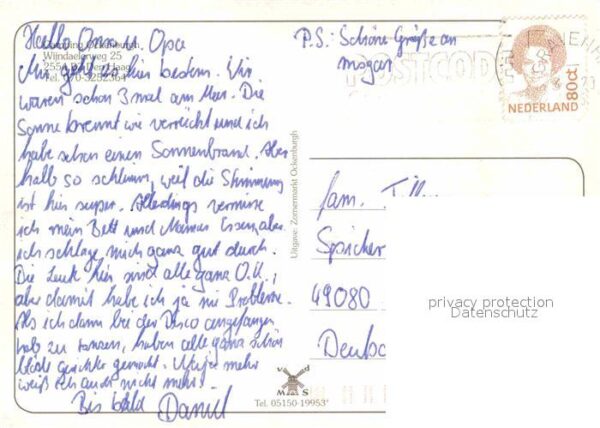 Hallo Oma u. Opa
Camping Ockenburgh
Wijndaelerweg 25
2554 BZ Den Haag
Tel. 070-3252364
Mir geht es hier bestens. Wir
waren schon 3 mal am Meer. Die
Sonne brennt wie verrückt und ich
habe schon einen Sonnenbrand. Aber
halb so schlimm, weil die Stimmung
ist hier super. Allerdings vermisse
ich mein Bett und Mamas Essen, aber
ich schlage mich ganz gut durch.
Die Leute hier sind alle ganz O.K.,
aber damit habe ich ja nie Probleme.
Als ich dann bei der Disco angefangen
hab zu tanzen, haben alle ganz schön
blöde Gesichter gemacht. mehr
weiß ich auch nicht mehr.
Bis bald Daniel
P.S.: Schöne Grüße an
POSTCODE
NEDERLAND
80ct
Uitgave: Zomermarkt Ockenburgh
Fam.
Spicher
49080
Deutsc
privacy protection
Datenschutz
M S
Tel. 05150-19953*